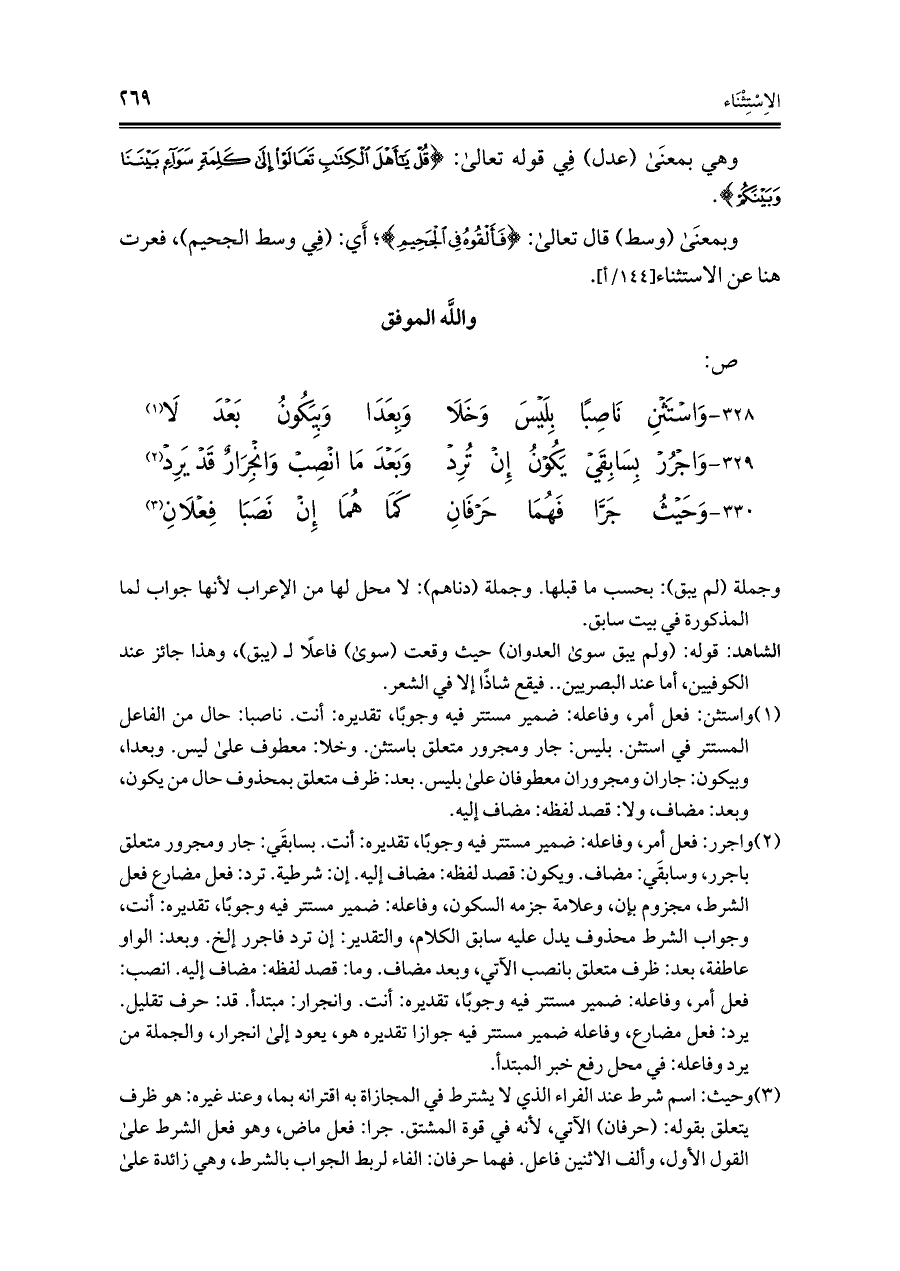 الاِسْتِثْنَاء ٢٦٩
وهي بمعنَىٰ (عدل) فِي قوله تعالىٰ: ﴿قُلْ يَٰٓأَهْلَ ٱلْكِتَٰبِ تَعَالَوْا۟ إِلَىٰ كَلِمَةٍ سَوَآءٍ بَيْنَنَا
وَبَيْنَكُمْ﴾.
وبمعنَىٰ (وسط) قال تعالىٰ: ﴿فَأَلْقُوهُ فِى ٱلْجَحِيمِ﴾؛ أَي: (فِي وسط الجحيم)، فعرت
هنا عن الاستثناء[١٤٤/أ].
واللَّه الموفق
ص:
٣٢٨-وَاسْتَثْنِ نَاصِبًا بِلَيْسَ وَخَلَا وَبِعَدَا وَبِيَكُونُ بَعْدَ لَا(١)
٣٢٩-وَاجْرُرْ بِسَابِقَيْ يَكُوْنُ إِنْ تُرِدْ وَبَعْدَ مَا انْصِبْ وَانْجِرَارٌ قَدْ يَرِدْ(٢)
٣٣٠-وَحَيْثُ جَرَّا فَهُمَا حَرْفَانِ كَمَا هُمَا إِنْ نَصَبَا فِعْلَانِ(٣)
وجملة (لم يبق): بحسب ما قبلها. وجملة (دناهم): لا محل لها من الإعراب لأنها جواب لما
المذكورة في بيت سابق.
الشاهد: قوله: (ولم يبق سوىٰ العدوان) حيث وقعت (سوىٰ) فاعلًا لـ (يبق)، وهذا جائز عند
الكوفيين، أما عند البصريين.. فيقع شاذًا إلا في الشعر.
(١)واستثن: فعل أمر، وفاعله: ضمير مستتر فيه وجوبًا، تقديره: أنت. ناصبا: حال من الفاعل
المستتر في استثن. بليس: جار ومجرور متعلق باستثن. وخلا: معطوف علىٰ ليس. وبعدا،
وبيكون: جاران ومجروران معطوفان علىٰ بليس. بعد: ظرف متعلق بمحذوف حال من يكون،
وبعد: مضاف، ولا: قصد لفظه: مضاف إليه.
(٢)واجرر: فعل أمر، وفاعله: ضمير مستتر فيه وجوبًا، تقديره: أنت. بسابقَي: جار ومجرور متعلق
باجرر، وسابقَي: مضاف. ويكون: قصد لفظه: مضاف إليه. إن: شرطية. ترد: فعل مضارع فعل
الشرط، مجزوم بإن، وعلامة جزمه السكون، وفاعله: ضمير مستتر فيه وجوبًا، تقديره: أنت،
وجواب الشرط محذوف يدل عليه سابق الكلام، والتقدير: إن ترد فاجرر إلخ. وبعد: الواو
عاطفة، بعد: ظرف متعلق بانصب الآتي، وبعد مضاف. وما: قصد لفظه: مضاف إليه. انصب:
فعل أمر، وفاعله: ضمير مستتر فيه وجوبًا، تقديره: أنت. وانجرار: مبتدأ. قد: حرف تقليل.
يرد: فعل مضارع، وفاعله ضمير مستتر فيه جوازا تقديره هو، يعود إلىٰ انجرار، والجملة من
يرد وفاعله: في محل رفع خبر المبتدأ.
(٣)وحيث: اسم شرط عند الفراء الذي لا يشترط في المجازاة به اقترانه بما، وعند غيره: هو ظرف
يتعلق بقوله: (حرفان) الآتي، لأنه في قوة المشتق. جرا: فعل ماض، وهو فعل الشرط علىٰ
القول الأول، وألف الاثنين فاعل. فهما حرفان: الفاء لربط الجواب بالشرط، وهي زائدة علىٰ